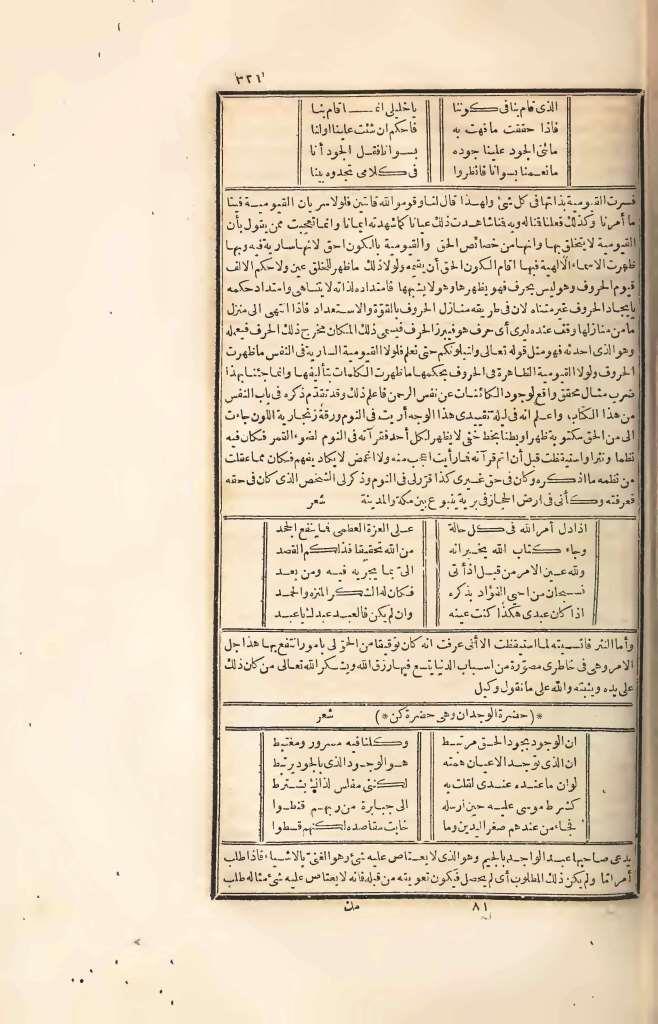 ٣٢١
الذى قام بنا فى كوننا يا خليلى انما قام بنا
فاذا حققت ما فهت به فاحكم ان شئت علينا أولنا
ما ثنى الجود علينا جوده بسوانا فقل الجود أنا
ما نعمنا بسوانا فانظروا فى كلامى تجدوه بينا
فسرت القيومية بذاتها فى كل شئ ولهذا قال لنا وقوموا لله قانتين فلولا سريان القيومية فينا
ما أمرنا وكذلك فعلنا قنا له وبه فنا شاهدت ذلك عيانا كما شهدته ايمانا وانما تعجبت ممن يقول بأن
القيومية لا يتخلق بها وانها من خصائص الحق والقيومية بالكون احق لانها سارية فيه وبها
ظهرت الاسماء الالهية فبها اقام الكون الحق أن يقيمه ولولا ذلك ما ظهر للخلق عين ولا حكم الالف
قيوم الحروف وهو ليس بحرف فهو يظهرها وهو لا يشبهها فامتداده لذاته لا يتناهى وامتداد حكمه
بايجاد الحروف غير متناه لان فى طريقه منازل الحروف بالقوة والاستعداد فاذا انتهى الى منزل
ما من منازلها وقف عنده ليرى أى حرف هو فيبرز الحرف فيسمى ذلك المكان مخرج ذلك الحرف فيعلمه
وهو الذى احدثه فهو مثل قوله تعالى ولنبلونكم حتى نعلم فلولا القيومية السارية فى النفس ما ظهرت
الحروف ولولا القيومية الظاهرة فى الحروف بحكمها ما ظهرت الكلمات بتأليفها وانما جئنا بهذا
ضرب مثال محقق واقع لوجود الكائنات عن نفس الرحمن فاعلم ذلك وقد تقدم ذكره فى باب النفس
من هذا الكتاب واعلم انه فى ليلة تقييدى هذا الوجه أريت فى النوم ورقة زنجارية اللون جاءت
الى من الحق مكتوبة ظهرا وبطنا بخط خفى لا يظهر لكل أحد فقرأته فى النوم لضوء القمر فكان فيه
نظما ونثرا واستيقظت قبل أن اتم قراءته فما رأيت اعجب منه ولا اغمض لا يكاد يفهم فكان مما عقلت
من نظمه ما اذكره وكان فى حق غيرى كذا قرر لى فى النوم وذكر لى الشخص الذى كان فى حقه
فعرفته وكأنى فى ارض الحجاز فى برية ينبوع بين مكة والمدينة شعر
اذا دل أمر الله فى كل حالة على العزة العظمى فما ينفع الجحد
وجاء كتاب الله يخبر انه من الله تحقيقا فذلكم القصد
ولله عين الامر من قبل اذ أتى الى بما يجريه فيه ومن بعد
فسبحان من احيى الفؤاد بذكره فكان له الشكر المنزه والحمد
اذا كان عبدى هكذا كنت عينه وان لم يكن فالعبد عبدك يا عبد
وأما النثر فانسيته لما استيقظت الا أنى عرفت انه كان توقيعا من الحق لى بامور انتفع بها هذا جل
الامر وهى فى خاطرى مصورة من اسباب الدنيا يتسع فيها رزق الله ويشكر الله تعالى من كان ذلك
على يده ويثبته والله على ما نقول وكيل
*(حضرة الوجدان وهى حضرة كن)* شعر
ان الوجود بجود الحق مرتبط وكلنا فيه مسرور ومغتبط
ان الذى توجد الاعيان همته هو الوجود الذى بالجود يرتبط
لو ان ما عنده عندى لقلت به لكننى مفلس لذاك يشترط
كشرط موسى عليه حين ارسله الى جبابرة من ربهم قنطوا
فجاء من عندهم صفر اليدين وما خابت مقاصده لكنهم قسطوا
يدعى صاحبها عبد الواجد بالجيم وهو الذى لا يعتاص عليه شئ وهو الغنى بالاشياء فاذا طلب
أمرا ما ولم يكن ذلك المطلوب أى لم يحصل فيكون تعويقه من قبله فانه لا يعتاص عليه شئ مثاله طلب
٨١ من